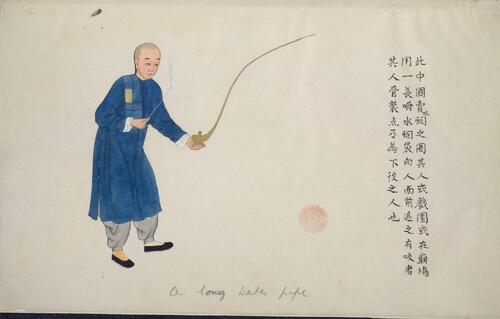 此中國賣水烟之圖其人或戲園或在廟場
用一長嘴水烟袋向人面前遞之有吸者
其人管裝点乃為下役之人也
A long water pipe